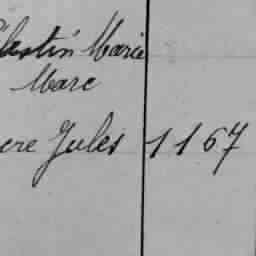 lestin Marie
Marc
ere Jules 1167